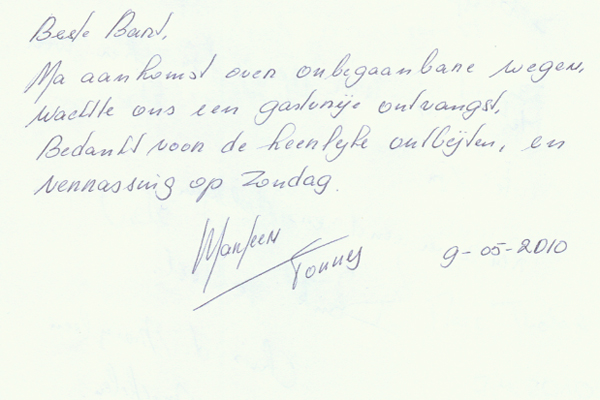 Beste Bart,
Na aankomst over onbegaanbare wegen,
wachtte ons een gastvrije ontvangst,
Bedankt voor de heerlijke ontbijten, en
verrassing op Zondag.
Marleen
Tonnes
9-05-2010